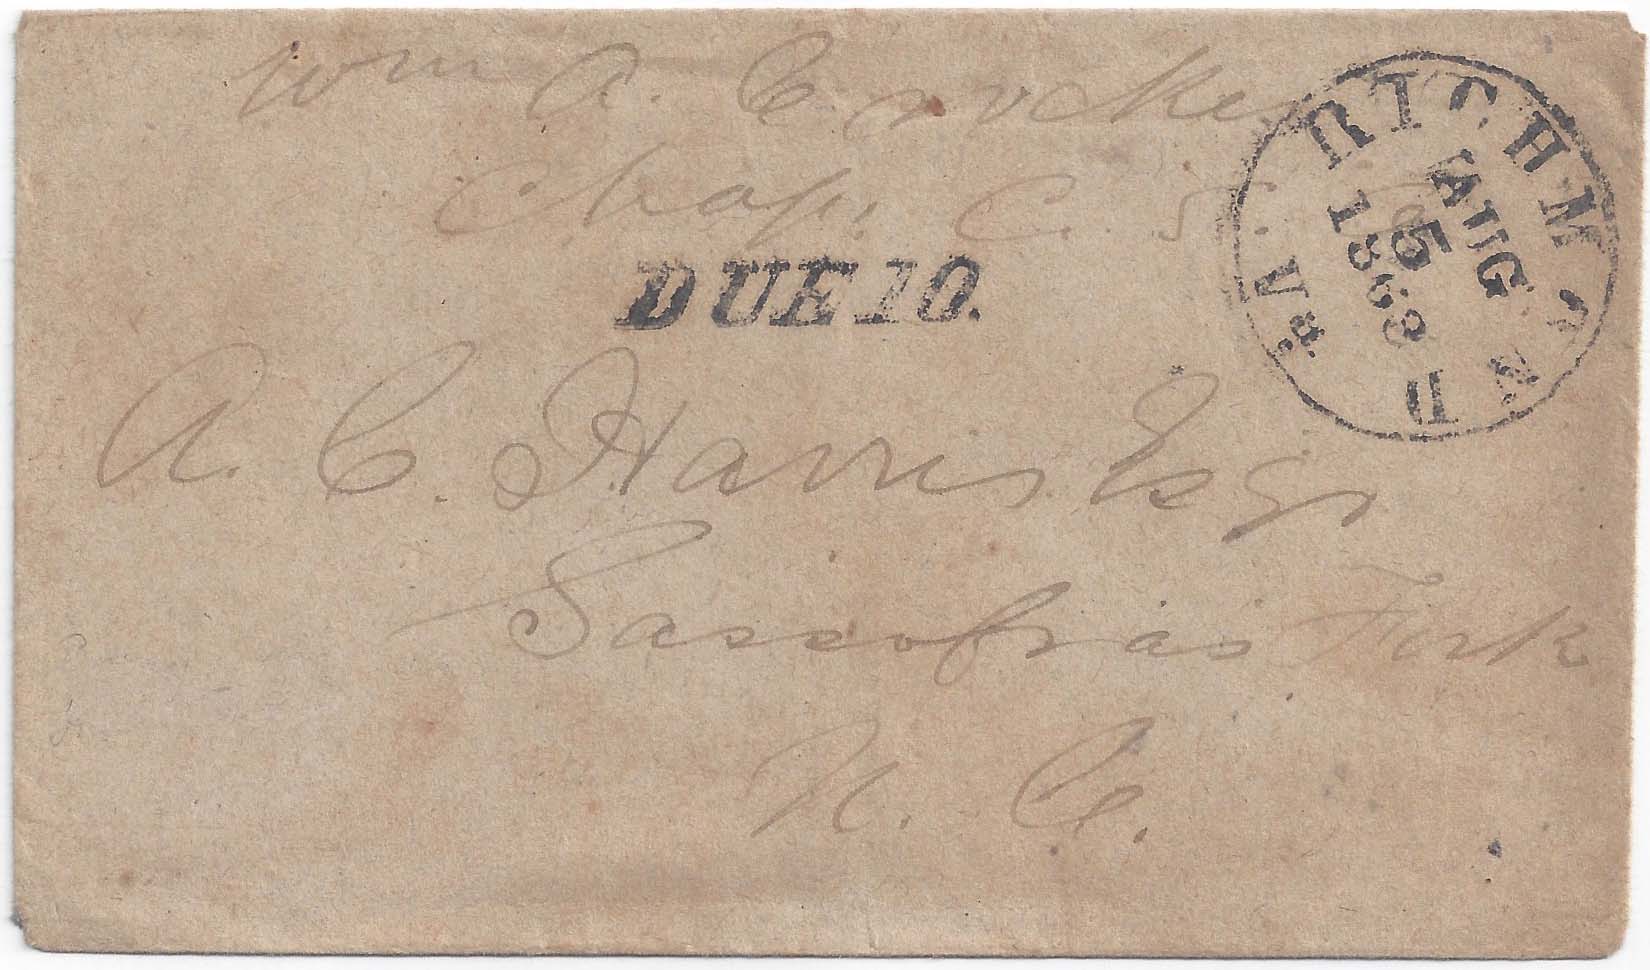 Wm A. Crocker
Chap. C. S. A
RICHMOND Va.
AUG
5
1863
DUE 10.
A. C. Harris Esqr
Sassofras Fork
N. C.